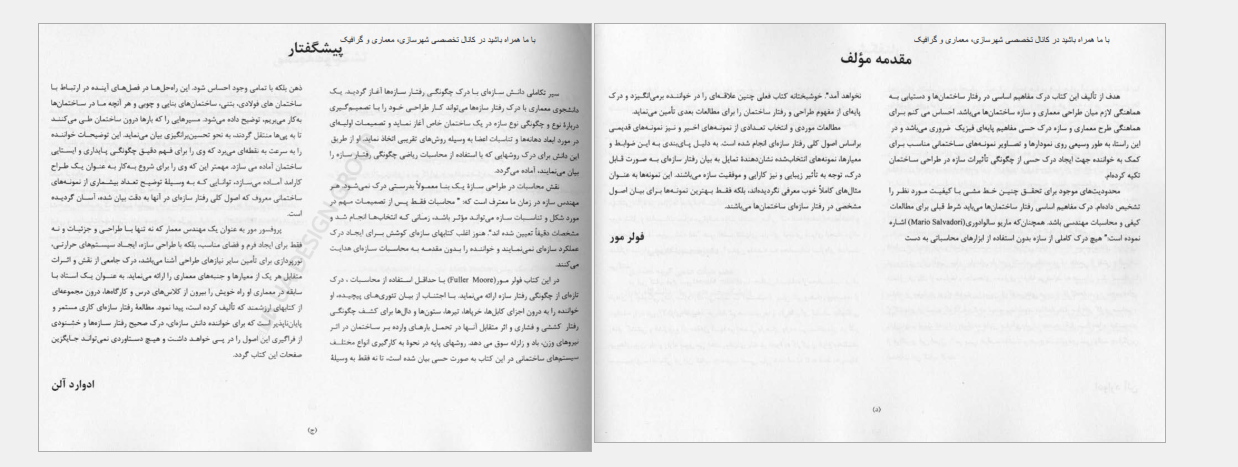 با ما همراه باشید در کانال تخصصی شهرسازی، معماری و گرافیک
پیشگفتار
سیر تکاملی دانش سازه‌ای با درک چگونگی رفتار سازه‌ها آغاز گردید. یک
دانشجوی معماری با درک رفتار سازه‌ها می‌تواند کار طراحی خود را با تصمیم‌گیری
دربارهٔ نوع و چگونگی نوع سازه در یک ساختمان خاص آغاز نماید و تصمیمات اولیه‌ای
در مورد ابعاد دهانه‌ها و تناسبات اعضا به وسیله روش‌های تقریبی اتخاذ نماید. او از طریق
این دانش برای درک روشهایی که با استفاده از محاسبات ریاضی چگونگی رفتار سازه را
بیان می‌نمایند، آماده می‌گردد.
نقش محاسبات در طراحی سازهٔ یک بنا معمولاً بدرستی درک نمی‌شود. هر
مهندس سازه در زمان ما معترف است که: " محاسبات فقط پس از تصمیمات مهم در
مورد شکل و تناسبات سازه می‌تواند مؤثر باشد، زمانی که انتخاب‌ها انجام شد و
مشخصات دقیقاً تعیین شده اند". هنوز اغلب کتابهای سازه‌ای کوشش برای ایجاد درک
عملکرد سازه‌ای نمی‌نمایند و خواننده را بدون مقدمه به محاسبات سازه‌ای هدایت
می‌کنند.
در این کتاب فولر مور(Fuller Moore) با حداقل استفاده از محاسبات ، درک
تازه‌ای از چگونگی رفتار سازه ارائه می‌نماید. با اجتناب از بیان تئوری‌های پیچیده، او
خواننده را به درون اجزای کابل‌ها، خرپاها، تیرها، ستون‌ها و دال‌ها برای کشف چگونگی
رفتار کششی و فشاری و اثر متقابل آنها در تحمل بارهای وارده بر ساختمان در اثر
نیروهای وزن، باد و زلزله سوق می دهد. روشهای پایه در نحوهٔ به کارگیری انواع مختلف
سیستم‌های ساختمانی در این کتاب به صورت حسی بیان شده است، تا نه فقط به وسیلهٔ
ذهن بلکه با تمامی وجود احساس شود. این راه‌حل‌ها در فصل‌های آینده در ارتباط با
ساختمان های فولادی، بتنی، ساختمان‌های بنایی و چوبی و هر آنچه ما در ساختمان‌ها
به‌کار می‌بریم، توضیح داده می‌شود. مسیرهایی را که بارها درون ساختمان طی می‌کنند
تا به پی‌ها منتقل گردند، به نحو تحسین‌برانگیزی بیان می‌نماید. این توضیحات خواننده
را به سرعت به نقطه‌ای می‌برد که وی را برای فهم دقیق چگونگی پایداری و ایستایی
ساختمان آماده می سازد. مهمتر این که وی را برای شروع به‌کار به عنوان یک طراح
کارامد آماده می‌سازد، توانایی که به وسیلهٔ توضیح تعداد بیشماری از نمونه‌های
ساختمانی معروف که اصول کلی رفتار سازه‌ای در آنها به دقت بیان شده، آسان گردیده
است.
پروفسور مور به عنوان یک مهندس معمار که نه تنها با طراحی و جزئیات و نه
فقط برای ایجاد فرم و فضای مناسب، بلکه با طراحی سازه، ایجاد سیستم‌های حرارتی،
نورپردازی برای تأمین سایر نیازهای طراحی آشنا می‌باشد، درک جامعی از نقش و اثرات
متقابل هر یک از معیارها و جنبه‌های معماری را ارائه می‌نماید. به عنوان یک استاد با
سابقه در معماری او راه خویش را بیرون از کلاس‌های درس و کارگاه‌ها، درون مجموعه‌ای
از کتابهای ارزشمند که تألیف کرده است، پیدا نمود. مطالعهٔ رفتار سازه‌ای کاری مستمر و
پایان‌ناپذیر است که برای خواننده دانش سازه‌ای، درک صحیح رفتار سازه‌ها و خشنودی
از فراگیری این اصول را در پی خواهد داشت و هیچ دستاوردی نمی‌تواند جایگزین
صفحات این کتاب گردد.
ادوارد آلن
(ج)
با ما همراه باشید در کانال تخصصی شهرسازی، معماری و گرافیک
مقدمه مؤلف
هدف از تألیف این کتاب درک مفاهیم اساسی در رفتار ساختمان‌ها و دستیابی به
هماهنگی لازم میان طراحی معماری و سازه ساختمان‌ها می‌باشد. احساس می کنم برای
هماهنگی طرح معماری و سازه درک حسی مفاهیم پایه‌ای فیزیک ضروری می‌باشد و در
این راستا، به طور وسیعی روی نمودارها و تصاویر نمونه‌های ساختمانی مناسب برای
کمک به خواننده جهت ایجاد درک حسی از چگونگی تأثیرات سازه در طراحی ساختمان
تکیه کرده‌ام.
محدودیت‌های موجود برای تحقق چنین خط مشی با کیفیت مورد نظر را
تشخیص داده‌ام. درک مفاهیم اساسی رفتار ساختمان‌ها می‌باید شرط قبلی برای مطالعات
کیفی و محاسبات مهندسی باشد. همچنان‌که ماریو سالوادوری(Mario Salvadori) اشاره
نموده است:" هیچ درک کاملی از سازه بدون استفاده از ابزارهای محاسباتی به دست
نخواهد آمد". خوشبختانه کتاب فعلی چنین علاقه‌ای را در خواننده برمی‌انگیزد و درک
پایه‌ای از مفهوم طراحی و رفتار ساختمان را برای مطالعات بعدی تأمین می‌نماید.
مطالعات موردی و انتخاب تعدادی از نمونه‌های اخیر و نیز نمونه‌های قدیمی
براساس اصول کلی رفتار سازه‌ای انجام شده است. به دلیل پای‌بندی به این ضوابط و
معیارها، نمونه‌های انتخاب‌شده نشان‌دهندهٔ تمایل به بیان رفتار سازه‌ای به صورت قابل
درک، توجه به تأثیر زیبایی و نیز کارایی و موفقیت سازه می‌باشند. این نمونه‌ها به عنوان
مثال‌های کاملاً خوب معرفی نگردیده‌اند، بلکه فقط بهترین نمونه‌ها برای بیان اصول
مشخصی در رفتار سازه‌ای ساختمان‌ها می‌باشند.
فولر مور
(د)